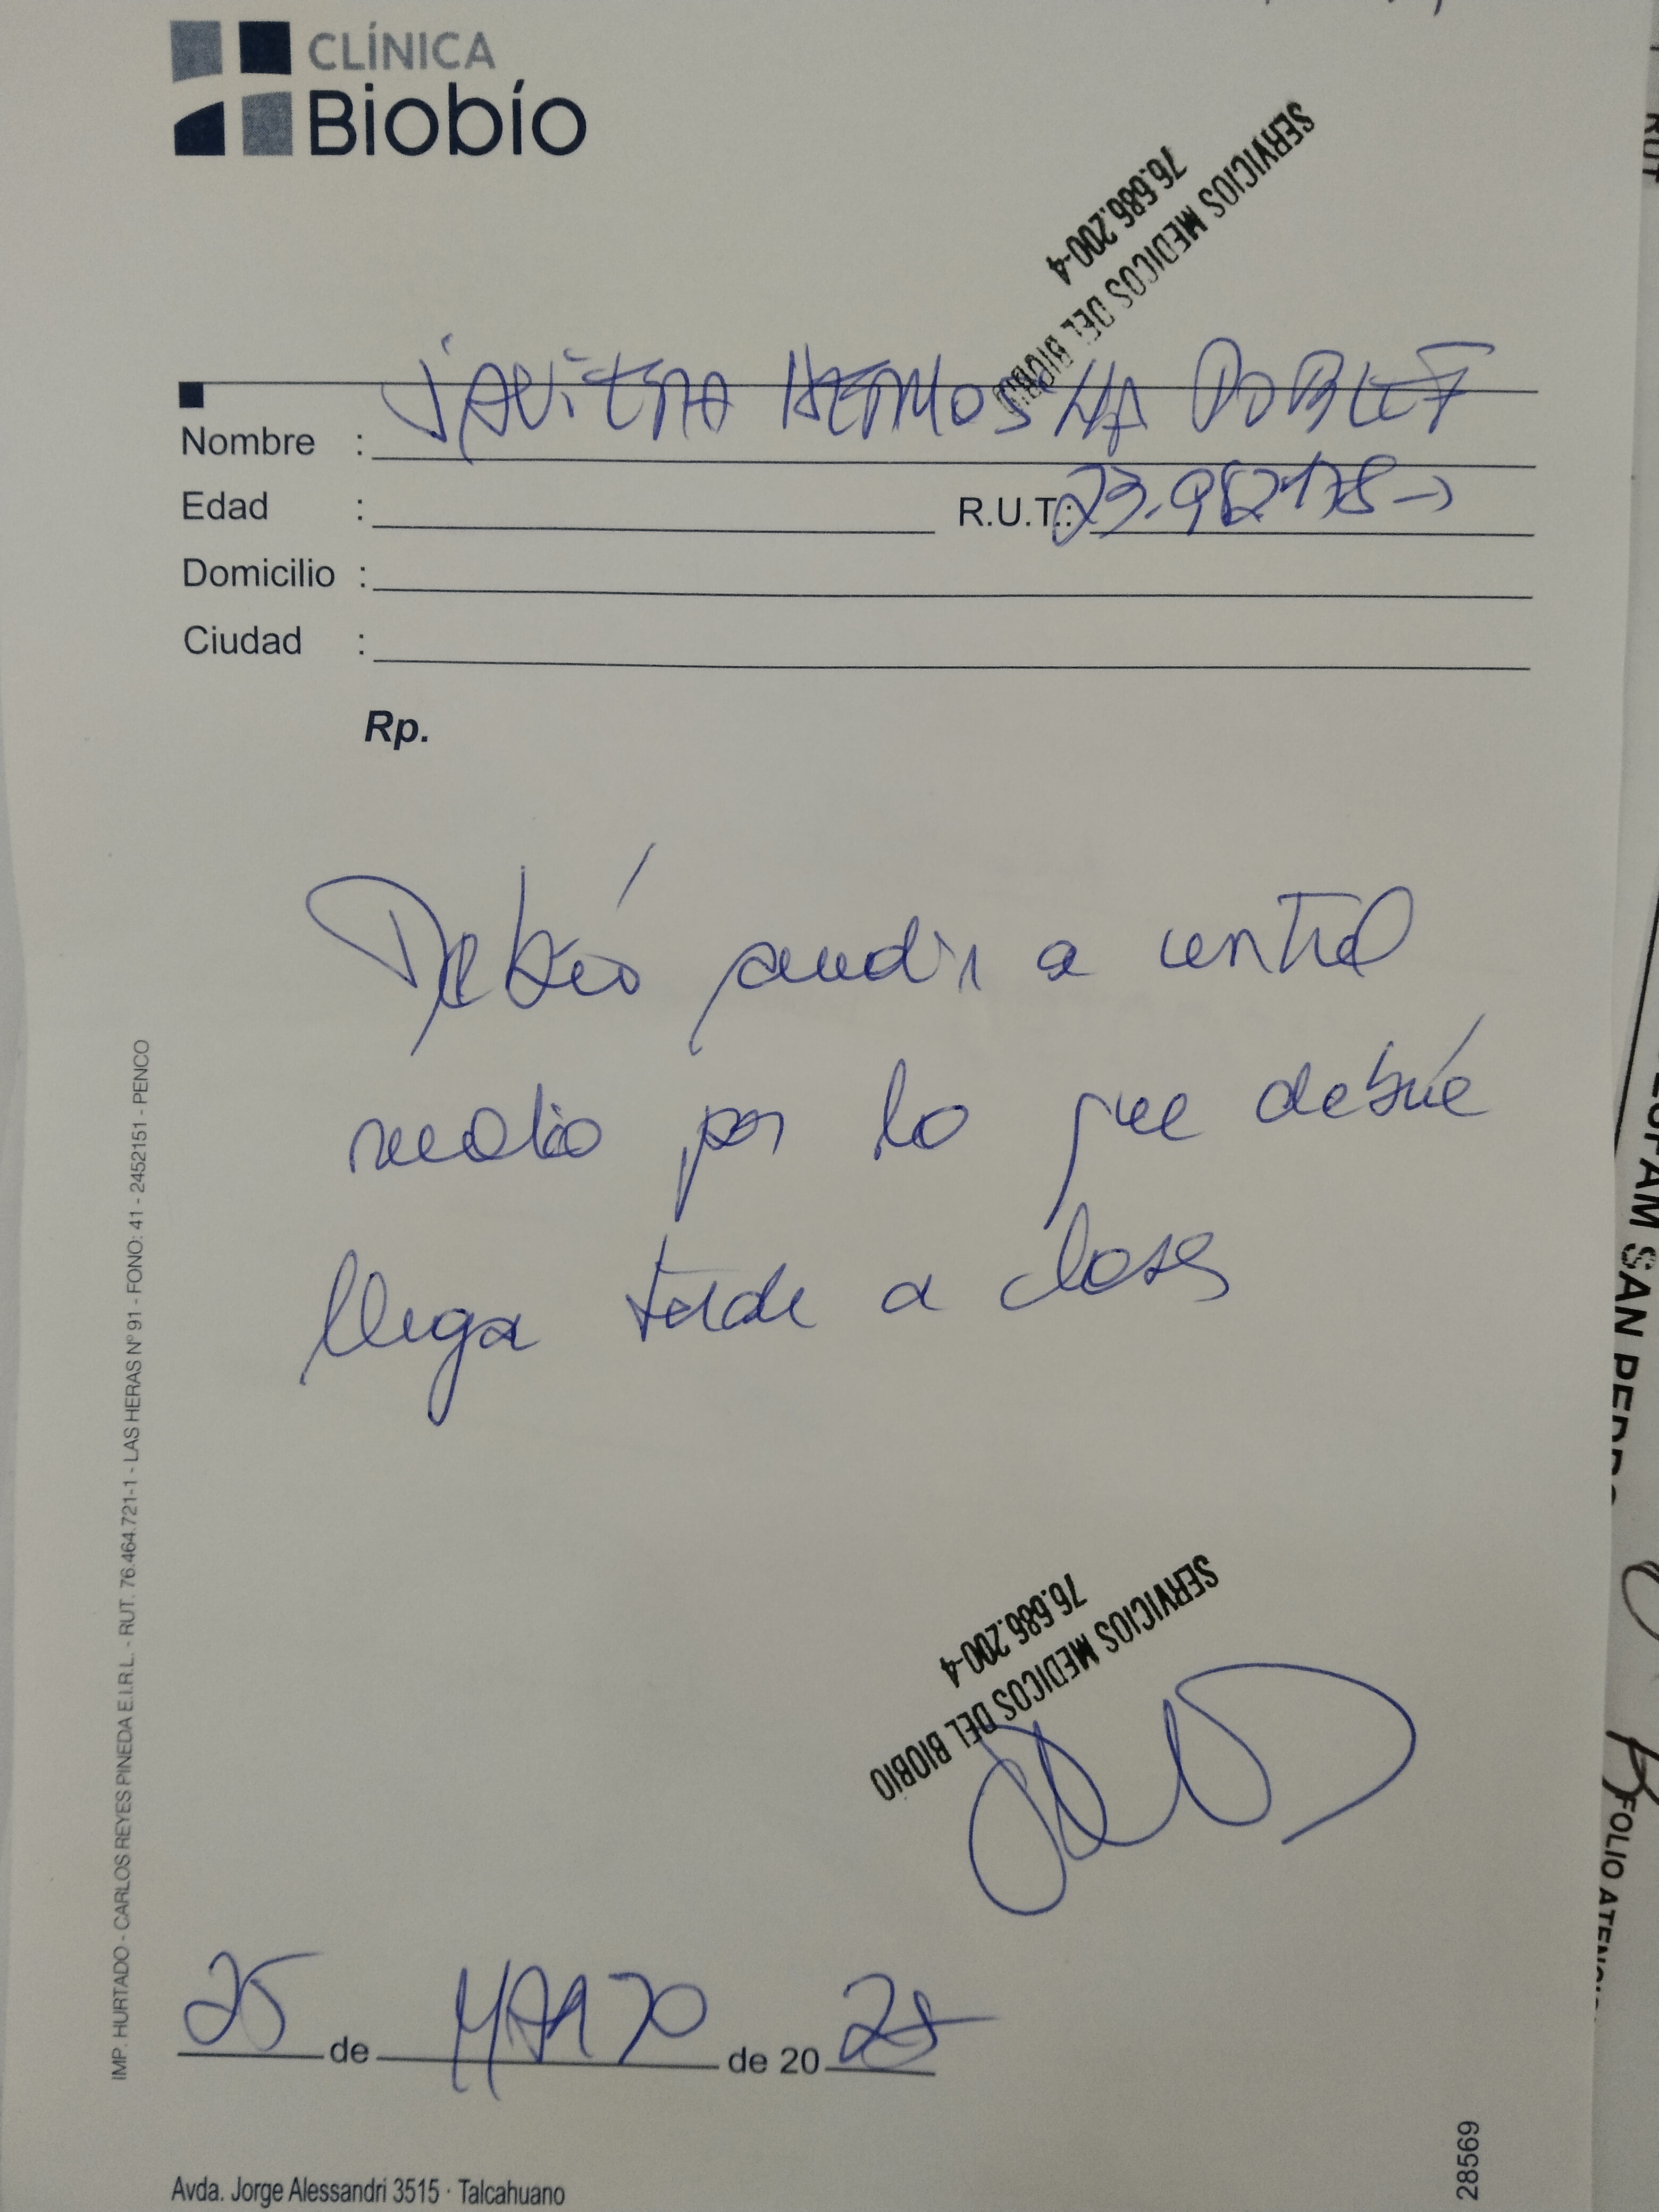 CLÍNICA
Biobío
SERVICIOS MEDICOS DEL BIOBIO
76.686.200-4
Nombre : JAVIERA HERMOSILLA POBLET
Edad : R.U.T.: 23.982178-
Domicilio :
Ciudad :
Rp.
Debió acudir a control
medico por lo que debió
llegar tarde a clases
SERVICIOS MEDICOS DEL BIOBIO
76.686.200-4
25 de MARZO de 20 25
IMP. HURTADO - CARLOS REYES PINEDA E.I.R.L. - RUT. 76.464.721-1 - LAS HERAS Nº 91 - FONO: 41 - 2452151 - PENCO
Avda. Jorge Alessandri 3515 · Talcahuano
28569
RUT
SAN PEDRO
FOLIO